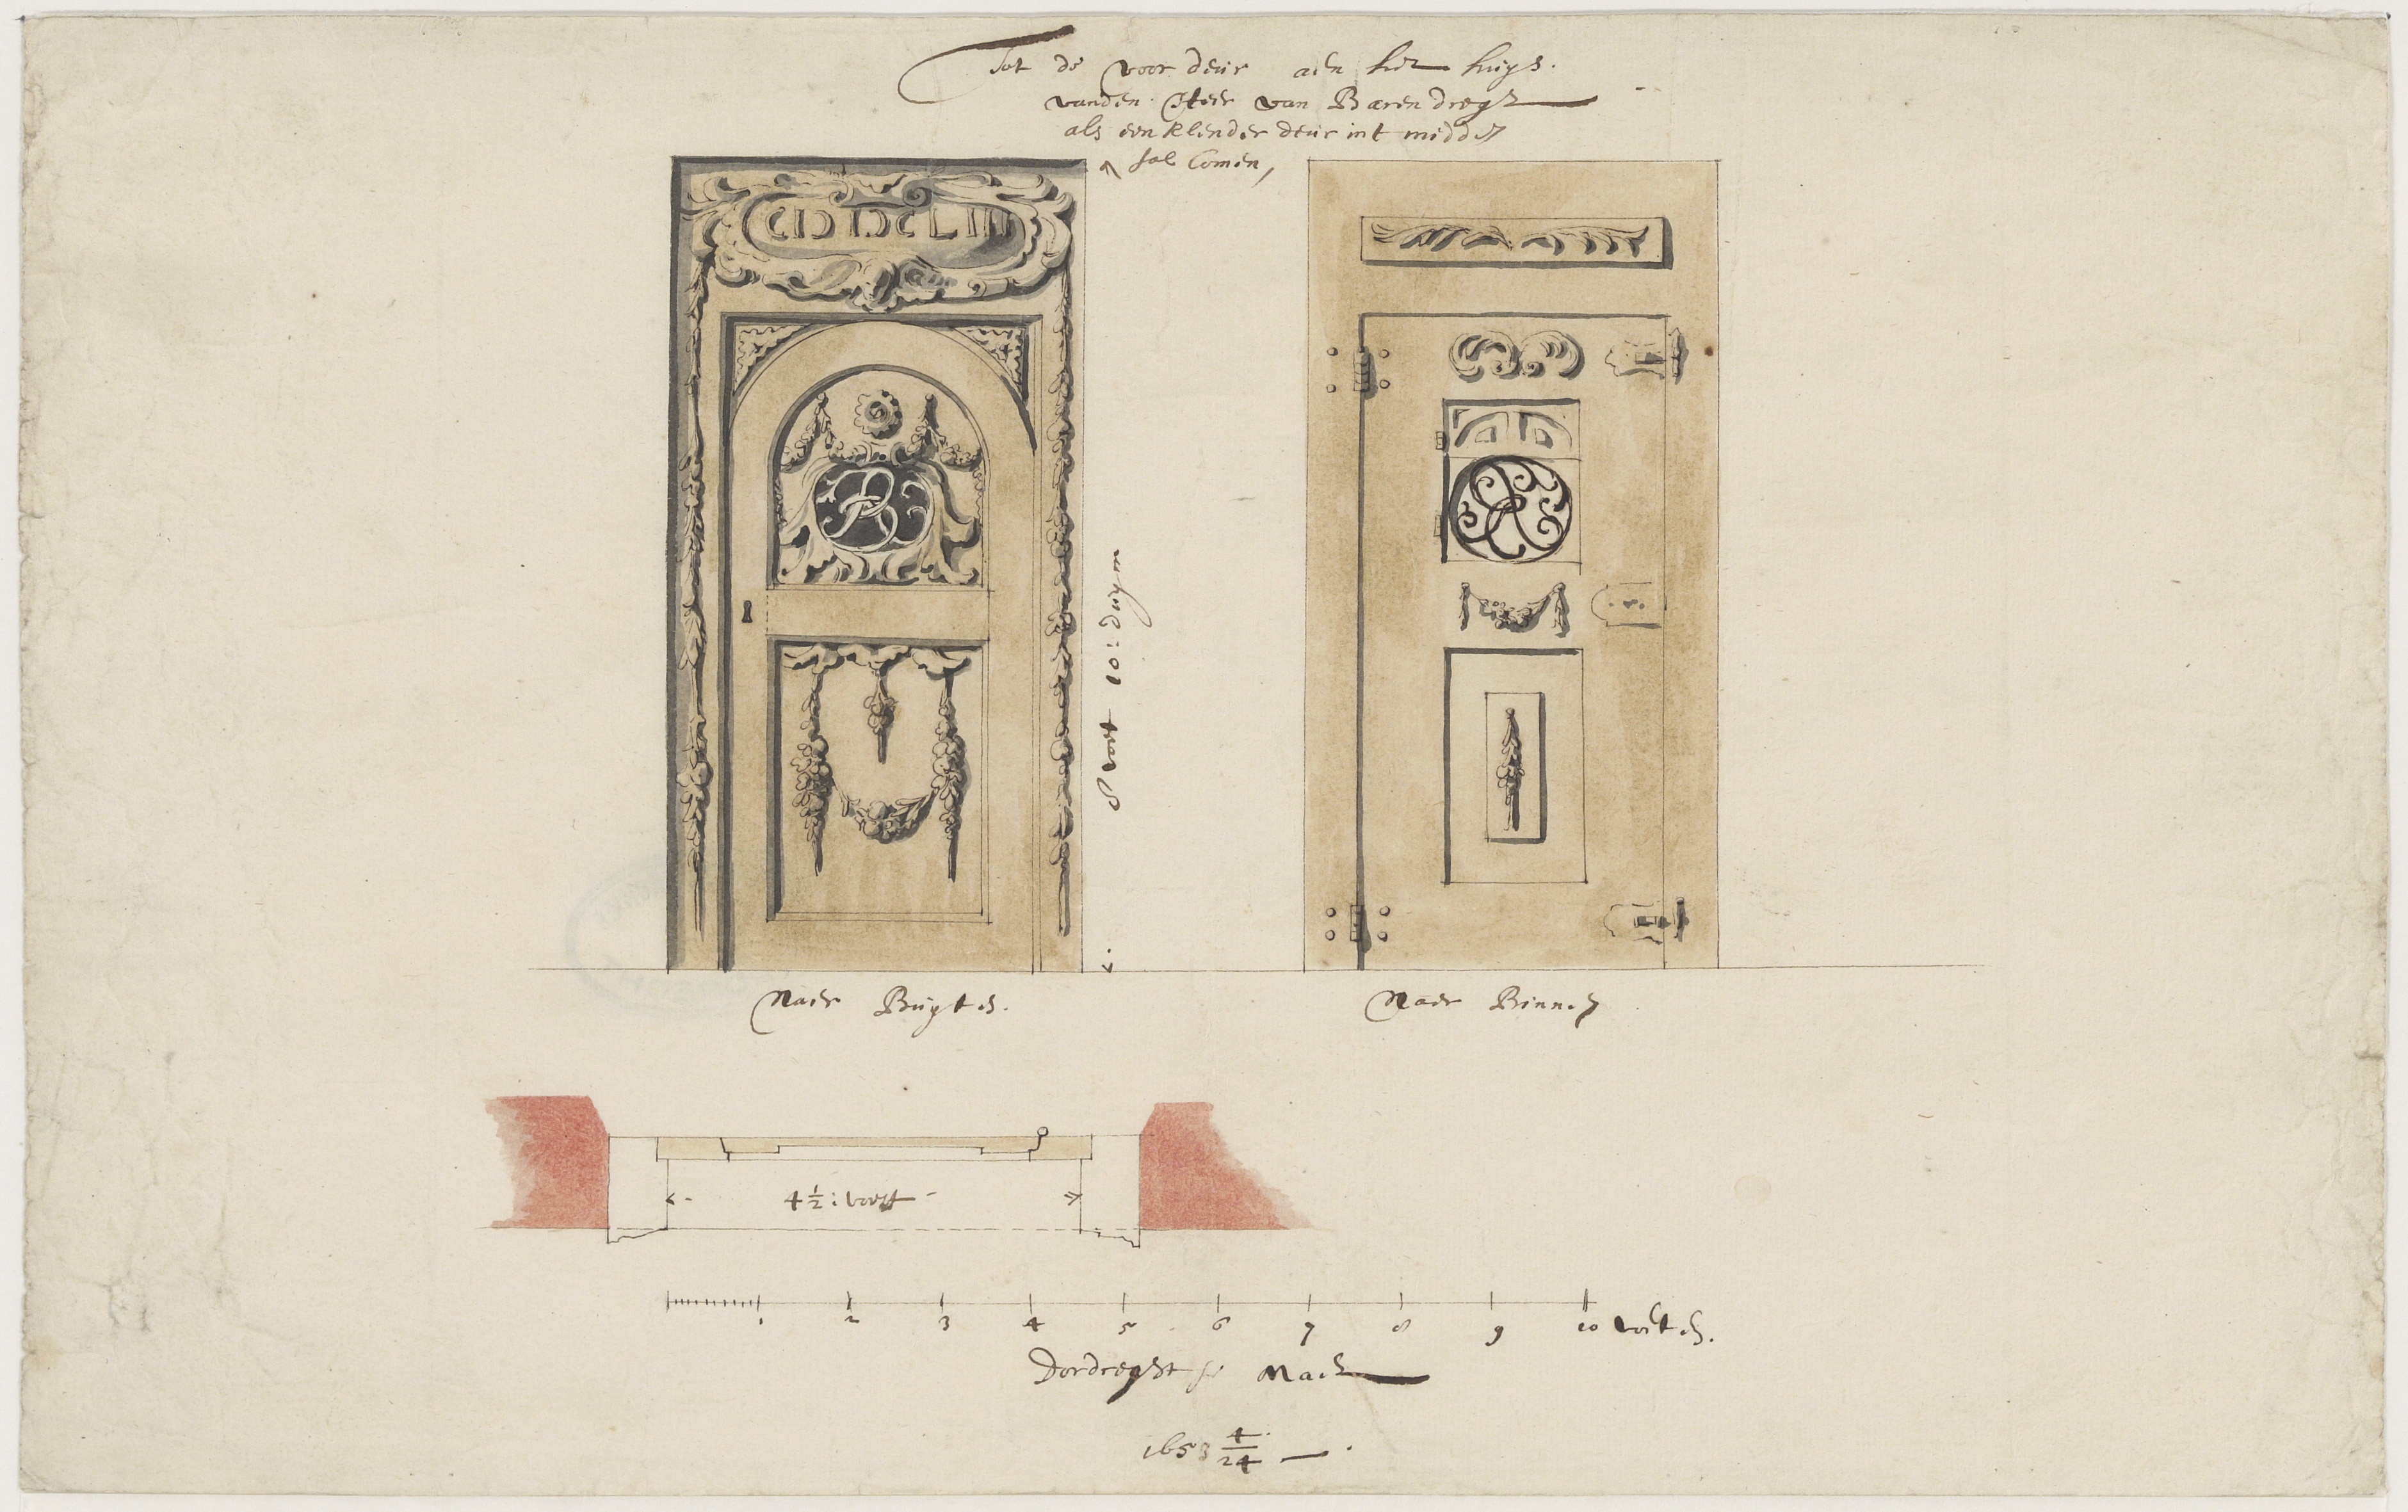 Tot de voor deur aen het huys.
vanden Heer van Barendregt
als een klender deur int midden
sal Comen,
CIↃ IↃC LIII
8 voet 10: duym
Naer Buyten.
Naer Binnen
4 1/2: voet
1 2 3 4 5 6 7 8 9 10 voeten.
Dordreghtse Maet
1653 4/24